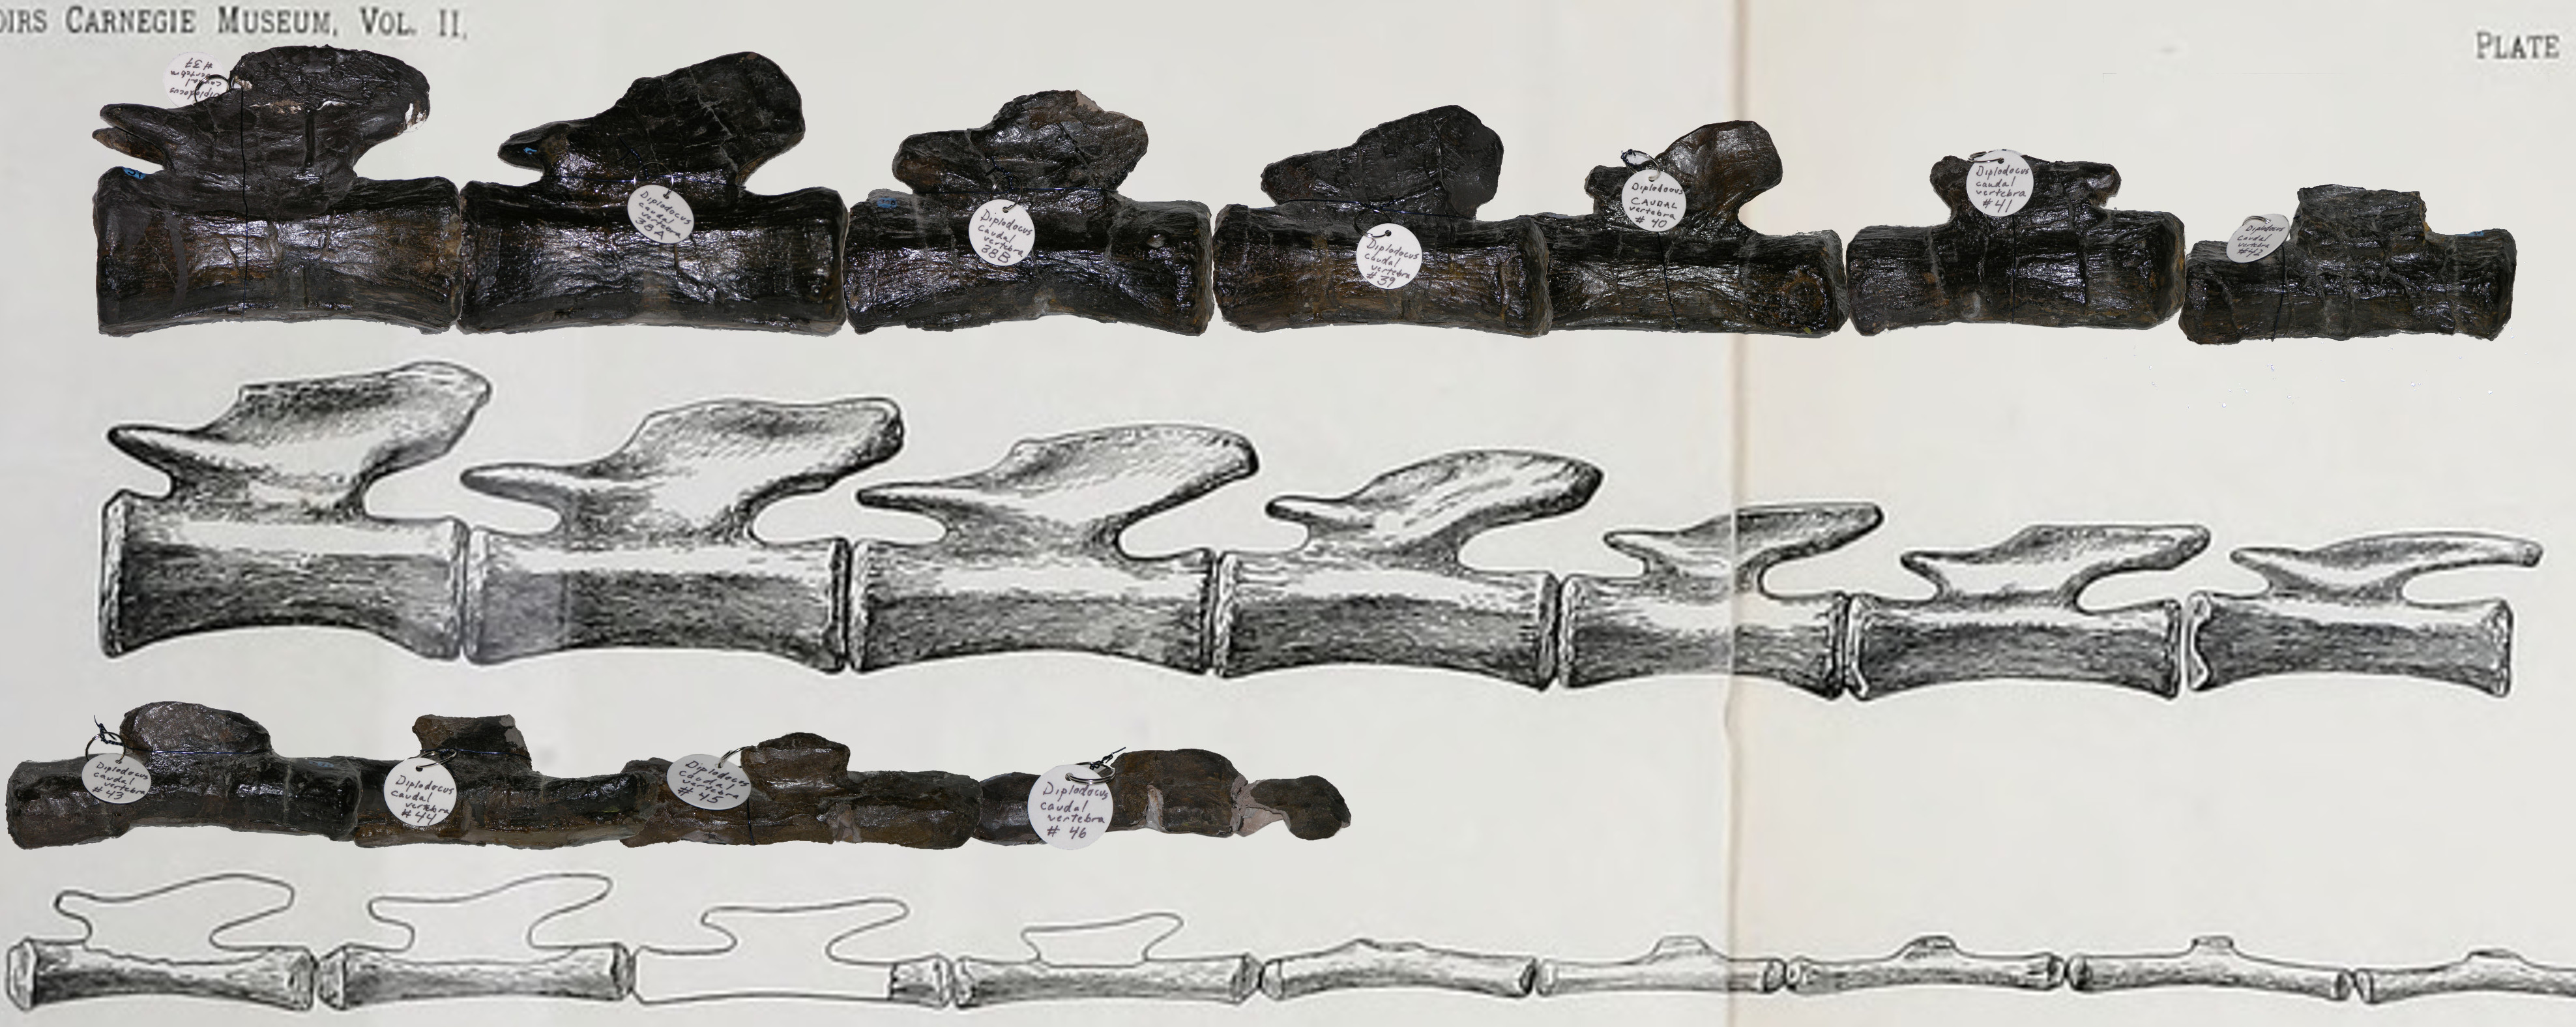 OIRS CARNEGIE MUSEUM, VOL. II.
PLATE
Diplodocus
caudal
vertebra
#37
Diplodocus
caudal
vertebra
38A
Diplodocus
caudal
vertebra
38B
Diplodocus
caudal
vertebra
#39
Diplodocus
CAUDAL
vertebra
# 40
Diplodocus
caudal
vertebra
# 41
Diplodocus
caudal
vertebra
#42
Diplodocus
caudal
vertebra
#43
Diplodocus
caudal
vertebra
#44
Diplodocus
caudal
vertebra
# 45
Diplodocus
caudal
vertebra
# 46